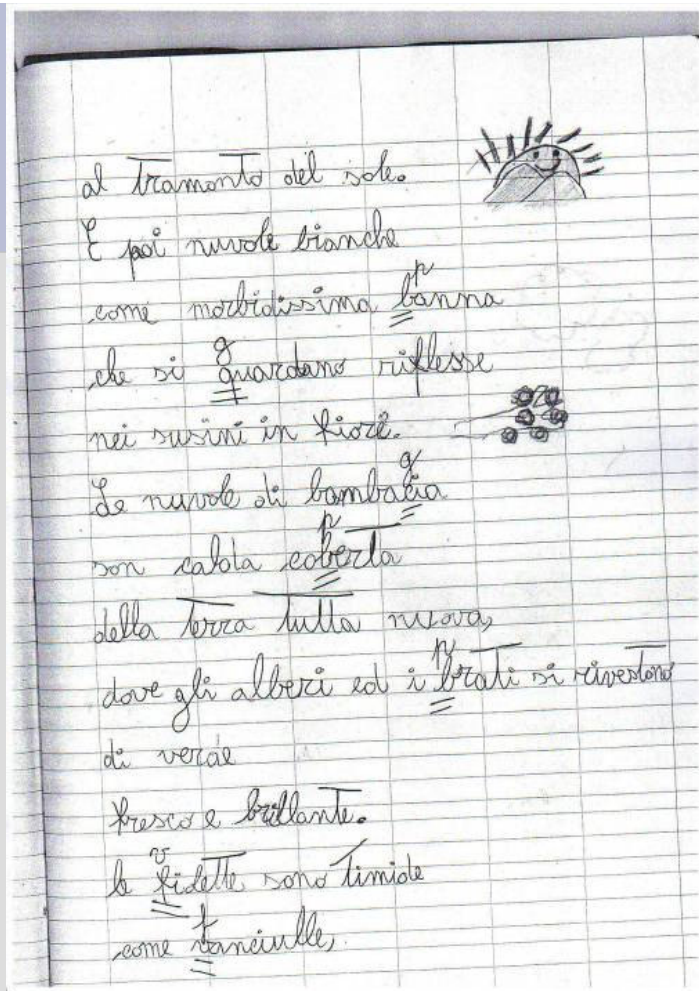 al tramonto del sole.
E poi nuvole bianche
p
come morbidissima banna
g
che si quardano riflesse
nei susini in fiore.
g
Le nuvole di bambacia
p
son calda coberta
della terra tutta nuova,
p
dove gli alberi ed i brati si rivestono
di verde
fresco e brillante.
v
le fidette sono timide
f
come vanciulle,